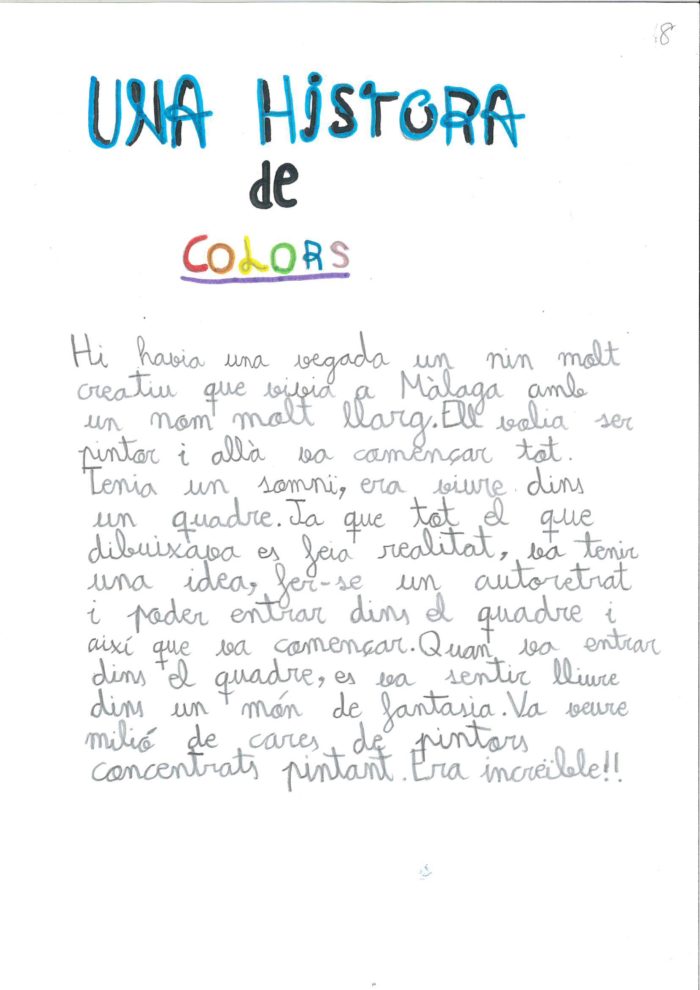 8
UNA HiSTORA
de
COLORS
Hi havia una vegada un nin molt
creatiu que vivia a Màlaga amb
un nom molt llarg. Ell volia ser
pintor i allà va començar tot.
Tenia un somni, era viure dins
un quadre. Ja que tot el que
dibuixava es feia realitat, va tenir
una idea, fer-se un autoretrat
i poder entrar dins el quadre i
així que va començar. Quan va entrar
dins el quadre, es va sentir lliure
dins un món de fantasia. Va veure
milió de cares de pintors
concentrats pintant. Era increïble!!